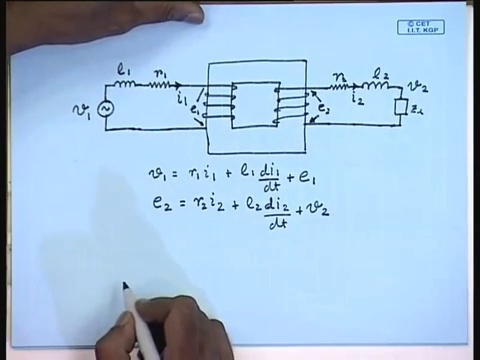 © CET
I.I.T. KGP
l₁ r₁ r₂ l₂
v₁ i₁ e₁ e₂ i₂ v₂ Z_L
v₁ = r₁i₁ + l₁ di₁/dt + e₁
e₂ = r₂i₂ + l₂ di₂/dt + v₂